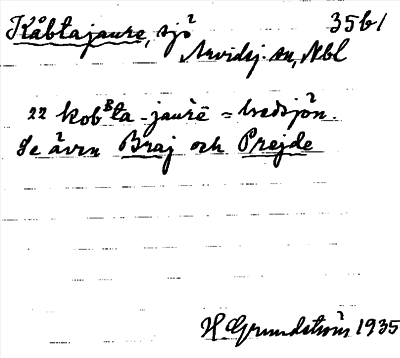 Kåbtajaure, sjö 35b1
Arvidsj. sn, Nbl
22 kobᴮta-jaurē = bredsjön.
Se även Braj och Prejde
H Grundström 1935